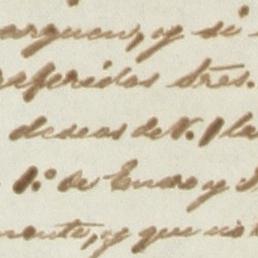 arguen, y si
referidos tres.
deseos de V. Ila
1º de Enero y
mente, y que no